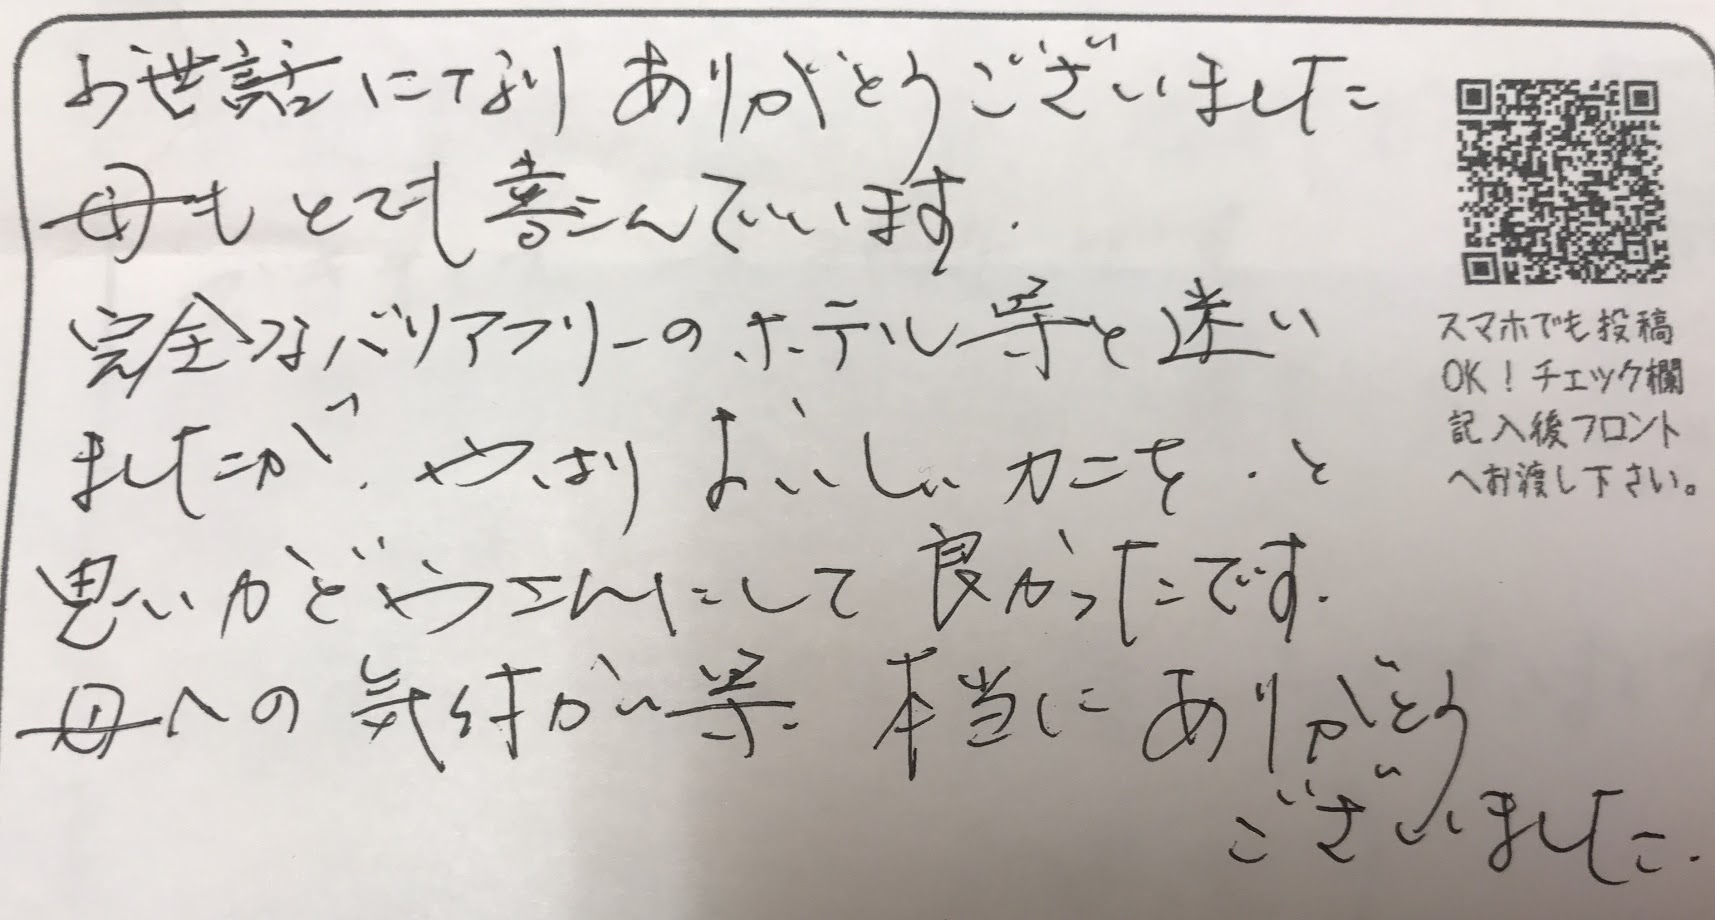 お世話になり ありがとうございました
母もとても喜こんでいます.
完全なバリアフリーのホテル等と迷い
ましたが、やはり おいしい カニを.と
思い がどやうこんにして 良かったです.
母への 気付かい等. 本当に ありがとう
ございました.
スマホでも投稿
OK!チェック欄
記入後フロント
へお渡し下さい。